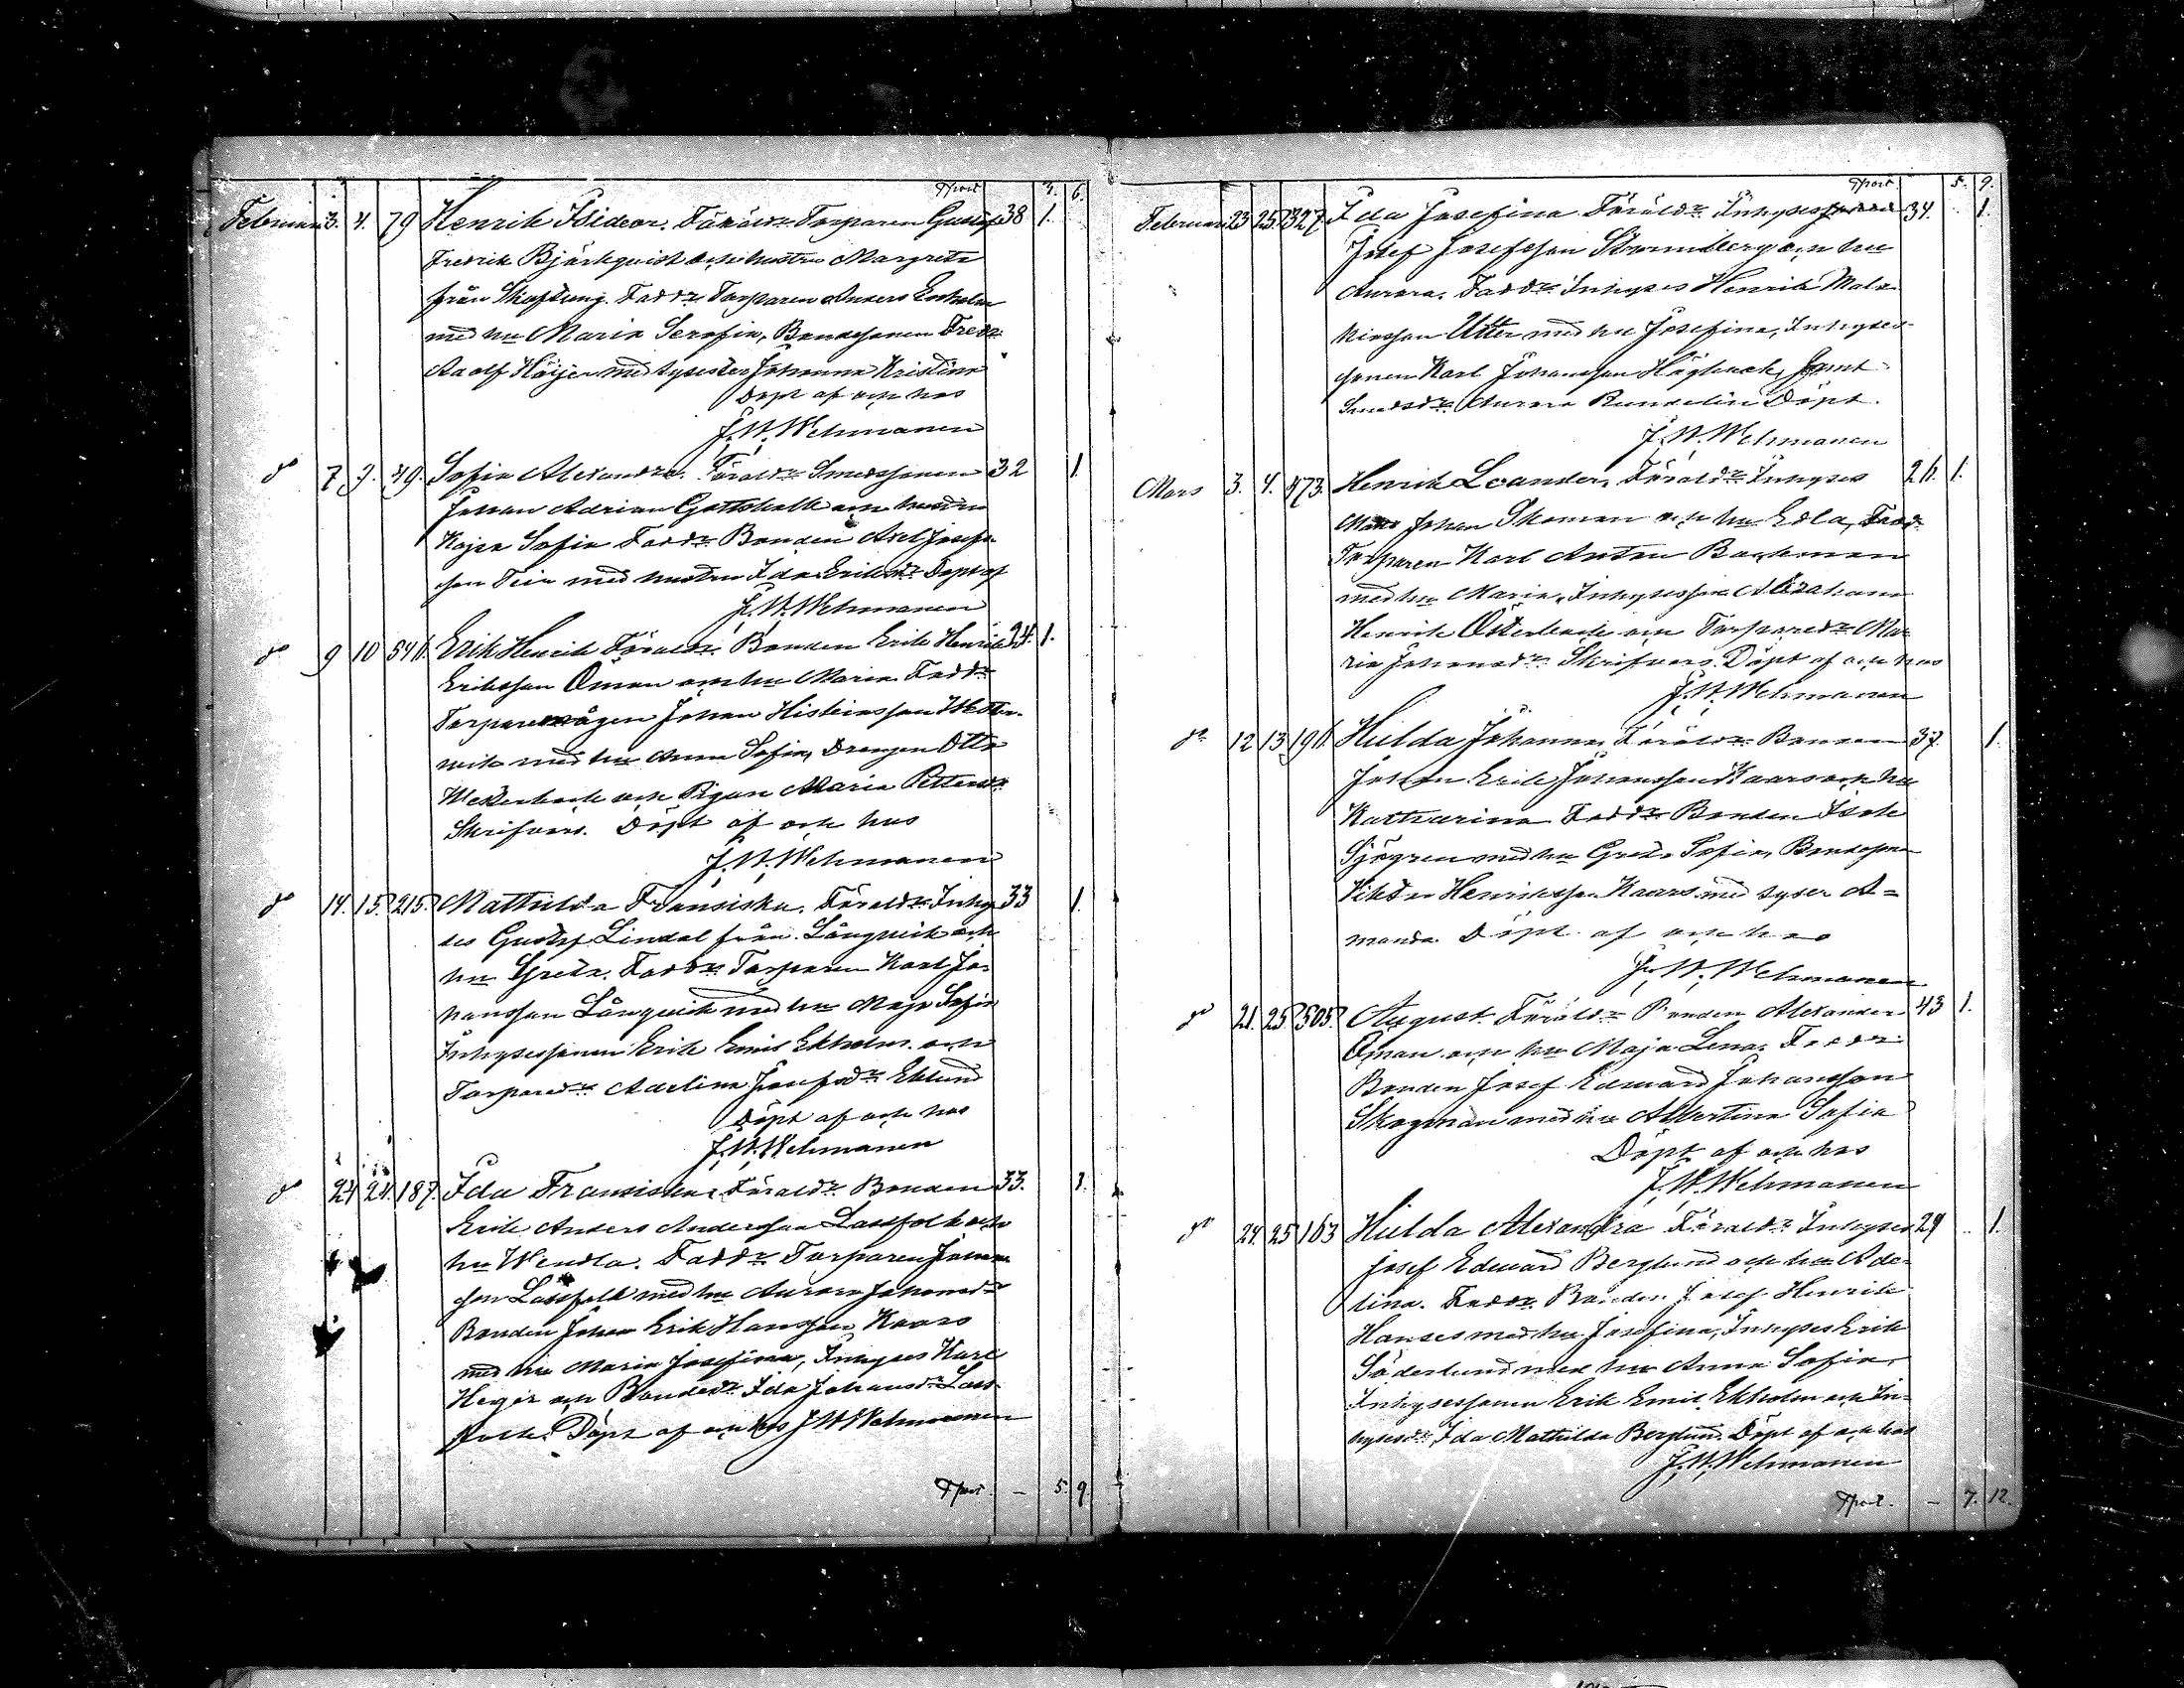 Tport 3. 6.
Februari 3. 4. 79 Henrik Isidor. Föräldr Torparen Gustaf 38 1.
Fredrik Björkqvist och hustru Margreta
från Skaftung. Faddr Torparen Anders
med hu Maria Serafia, Bondesonen Fredr
Adolf Höijer med syster Johanna Kristina
Döpt af och hos
J. W. Wehmanen
do 7 9. 49. Sofia Alexandra. Föräldr Smedssonen 32 1.
Johan Adrian Gottskalk och hustru
Kajsa Sofia Faddr Bonden Axel Josefs-
son Teir med hustru Ida Eriksdr Döpt af
J. W. Wehmanen
do 9 10 Erik Henrik Föräldr Bonden Erik Henrik 24. 1.
Eriksson Öman och hu Maria Faddr
Torparemågen Johan
med hu Anna Sofia, Drängen Otto
och Pigan Maria
Skrifvars. Döpt af och hos
J. W. Wehmanen
do 14. 15. 215. Mathilda Fransiska. Föräldr Inhy 33 1.
ses Gustaf Lindal från Långvik och
hu Greta. Faddr Torparen Karl Jo-
hansson Långvik med hu Maja Sofia
Inhysessonen Erik Emil Ekholm och
Torparedr Adelina Josefsdr Eklund
Döpt af och hos
J. W. Wehmanen
do 24 24. 187. Ida Fransiska, Föräldr Bonden 33. 1.
Erik Anders Andersson Lassfolk och
hu Wendla. Faddr Torparen Johans
son Lassfolk med hu Aurora Johansdr
Bonden Johan Erik Hansson Kaars
med hu Maria Josefina, Inhyses Karl
Heger och Bondedr Ida Johansdr Lass-
folk. Döpt af och hos J W Wehmanen
Tport. – 5. 9.
Tport 5. 9.
Februari 23 25. 327. Ida Josefina Föräldr Inhyses 34. 1.
Josef Josefsson Strandberg och hu
Aurora. Faddr Inhyses Henrik Mala
kiasson Utter med hu Josefina, Inhyses-
sonen Karl Johansson Högback, samt
Smedsdr Aurora Rundelin Döpt.
J. W. Wehmanen
Mars 3. 4. 473. Henrik Leander, Föräldr Inhyses 26. 1.
Johan Skoman och hu Edla, Faddr
Torparen Karl Anton Backman
med hu Maria, Inhysesson Abraham
Henrik Österback och Torparedr Ma
ria Johansdr Skrifvars. Döpt af och hos
J. W. Wehmanen
do 12 13 196. Hulda Johanna Föräldr Bonden 37. 1.
Johan Erik Johansson Kaars och hu
Katharina Faddr Bonden Isak
Sjögren med hu Greta Sofia, Bondeson
Viktor Henriksson Kaars med syster A=
manda. Döpt af och hos
J. W. Wehmanen
do 21. 25. 505. August. Föräldr Bonden Alexander 43 1.
Öman och hu Maja Lena. Faddr
Bonden Josef Edward Johansson
Skogman med hu Albertina Sofia
Döpt af och hos
J. W. Wehmanen
do 24. 25 163 Hulda Alexandra Föräldr Inhyses 29 1.
Josef Edward Berglund och hu Ade-
lina. Faddr Bonden Josef Henrik
Hanses med hu Josefina, Inhyses Erik
Söderlund med hu Anna Sofia,
Inhysessonen Erik Emil Ekholm och In-
hysesdr Ida Mathilda Berglund. Döpt af och hos
J. W. Wehmanen
Tport. – 7. 12.